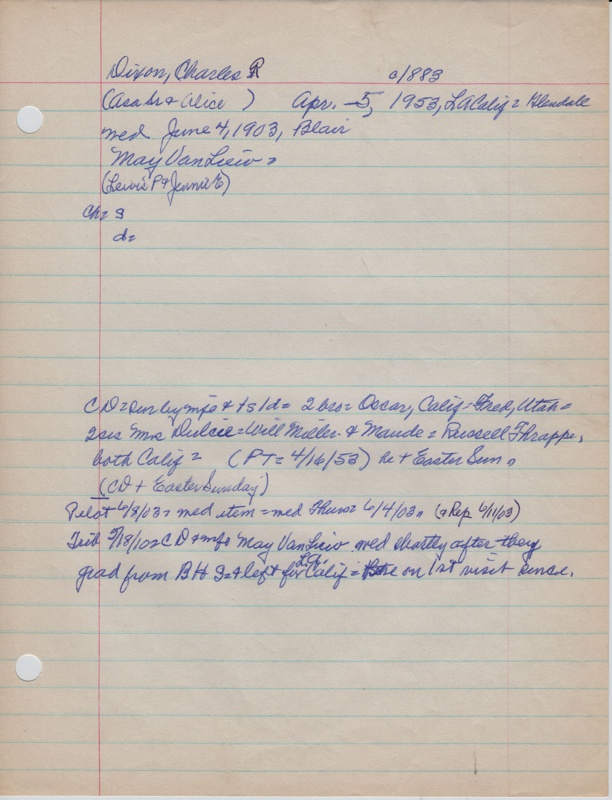 Dixon, Charles R c/1883
(Asa Sr & Alice ) Apr. 5, 1953, LA Calif = Glendale
med June 4, 1903, Blair
May VanLiew =
(Lewis P & Jennie E)
Ch = s
d =
CD = sur by mfs & 1s 1d = 2 bro = Oscar, Calif - Fred, Utah =
2 sis Mrs Dulcie = Will Miller & Maude = Russell Thrapp,
both Calif = (PT = 4/16/53) he + Easter Sun
(CD + Easter Sunday)
Pilot 6/3/03 = med item = med Thurs = 6/4/03 (= Rep 6/11/03)
Trib CD & mfs May VanLiew med shortly after they
grad from BHS = & left for L.A. Calif = on 1st visit since.